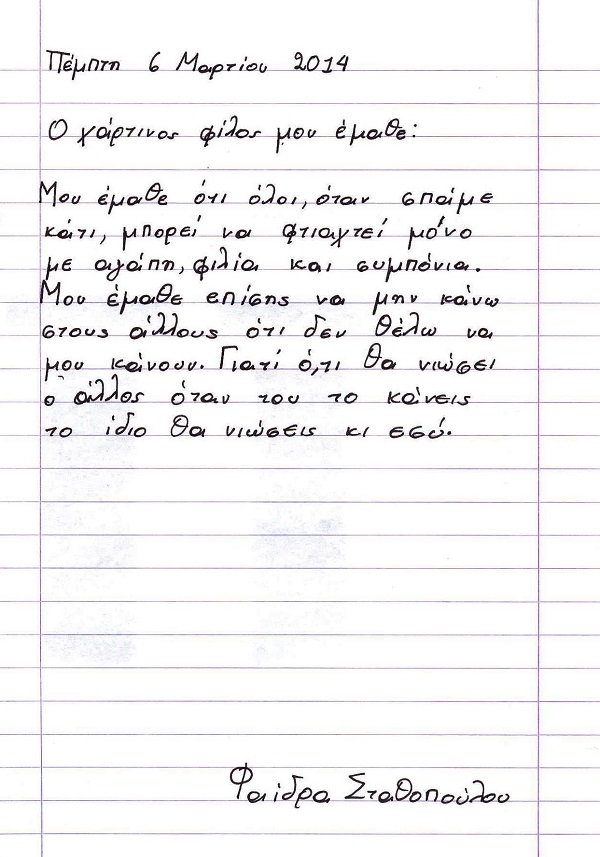 Πέμπτη 6 Μαρτίου 2014
Ο χάρτινος φίλος μου έμαθε:
Μου έμαθε ότι όλοι, όταν σπάμε
κάτι, μπορεί να φτιαχτεί μόνο
με αγάπη, φιλία και συμπόνια.
Μου έμαθε επίσης να μην κάνω
στους άλλους ότι δεν θέλω να
μου κάνουν. Γιατί ό,τι θα νιώσει
ο άλλος όταν του το κάνεις
το ίδιο θα νιώσεις κι εσύ.
Φαίδρα Σταθοπούλου